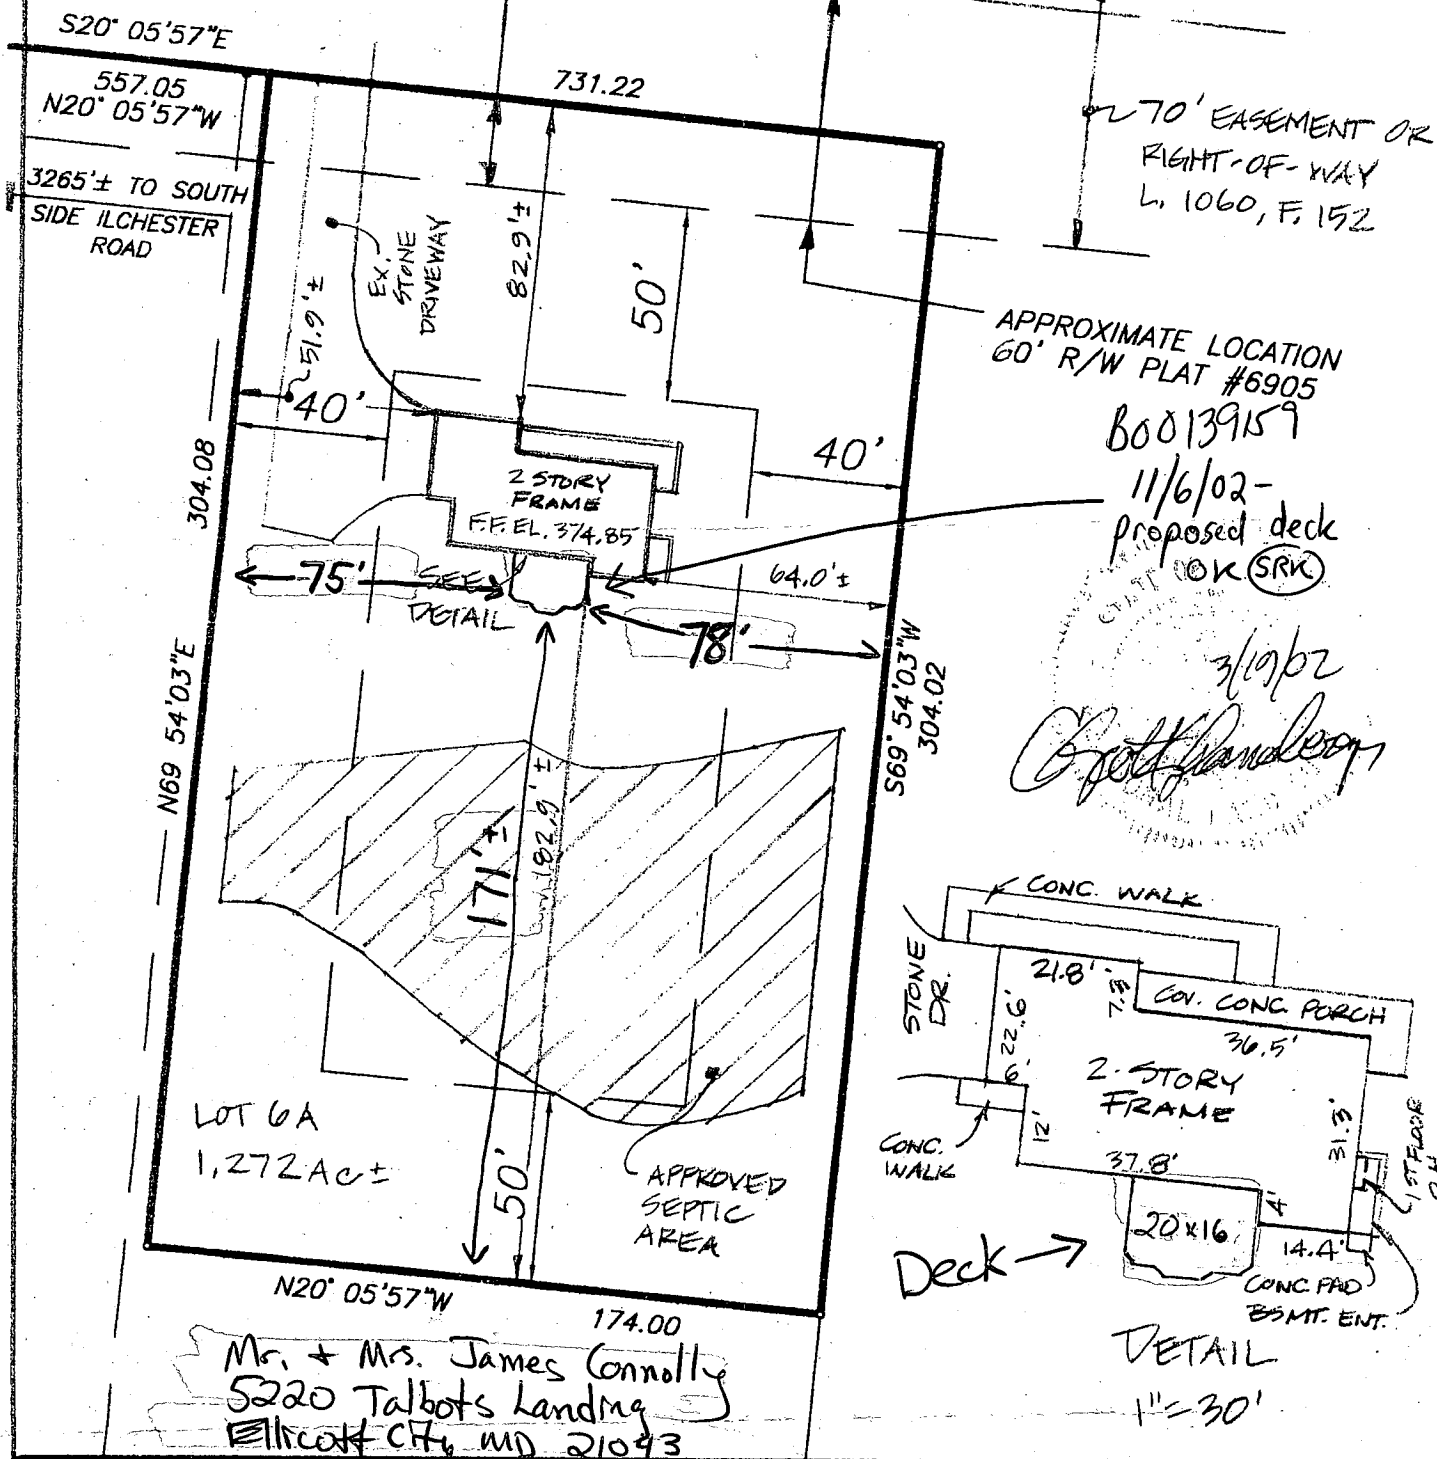 S20° 05'57"E
557.05
N20° 05'57"W
731.22
3265'± TO SOUTH
SIDE ILCHESTER
ROAD
70' EASEMENT OR
RIGHT-OF-WAY
L. 1060, F. 152
EX.
STONE
DRIVEWAY
82.9'±
50'
51.9'±
40'
40'
APPROXIMATE LOCATION
60' R/W PLAT #6905
B00139159
11/6/02-
proposed deck
OK SRK
304.08
N69 54'03"E
2 STORY
FRAME
F.F.EL. 374.85
75'
SEE
DETAIL
64.0'±
78'
S69° 54'03"W
304.02
3/19/02
171'±
182.9'±
50'
LOT 6A
1.272 Ac±
APPROVED
SEPTIC
AREA
N20° 05'57"W
174.00
Mr. + Mrs. James Connolly
5220 Talbots Landing
Ellicott City MD 21043
CONC. WALK
STONE
DR.
21.8'
7.3'
COV. CONC. PORCH
36.5'
22.6'
6'
2-STORY
FRAME
12'
CONC.
WALK
37.8'
31.3'
1ST FLOOR
20x16
4'
14.4'
Deck
CONC PAD
BSMT. ENT.
DETAIL
1"=30'